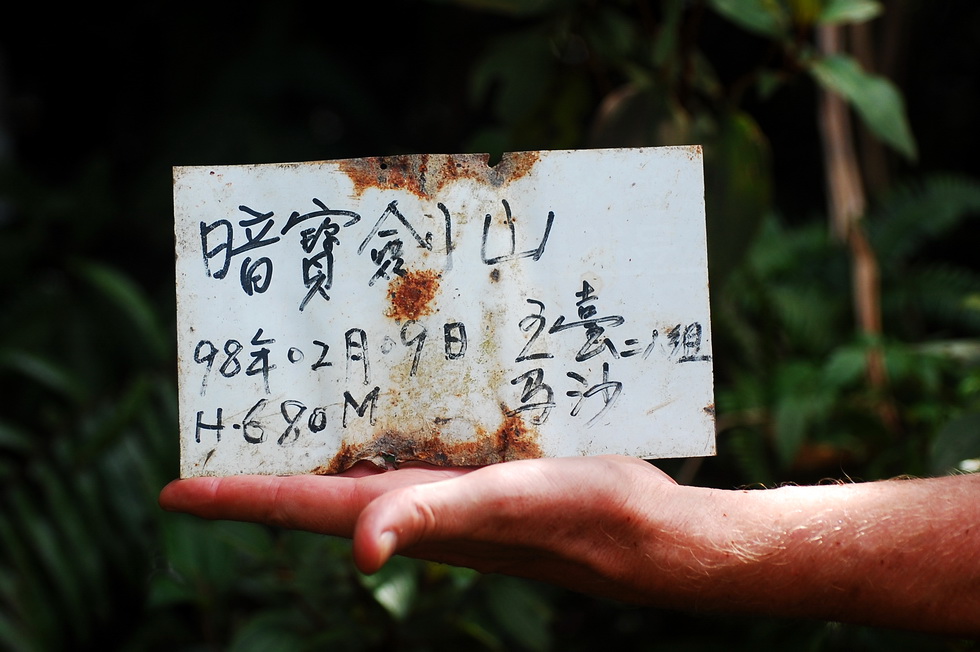 暗寶劍山
98年02月09日
H.680M
五臺二小組
馬沙